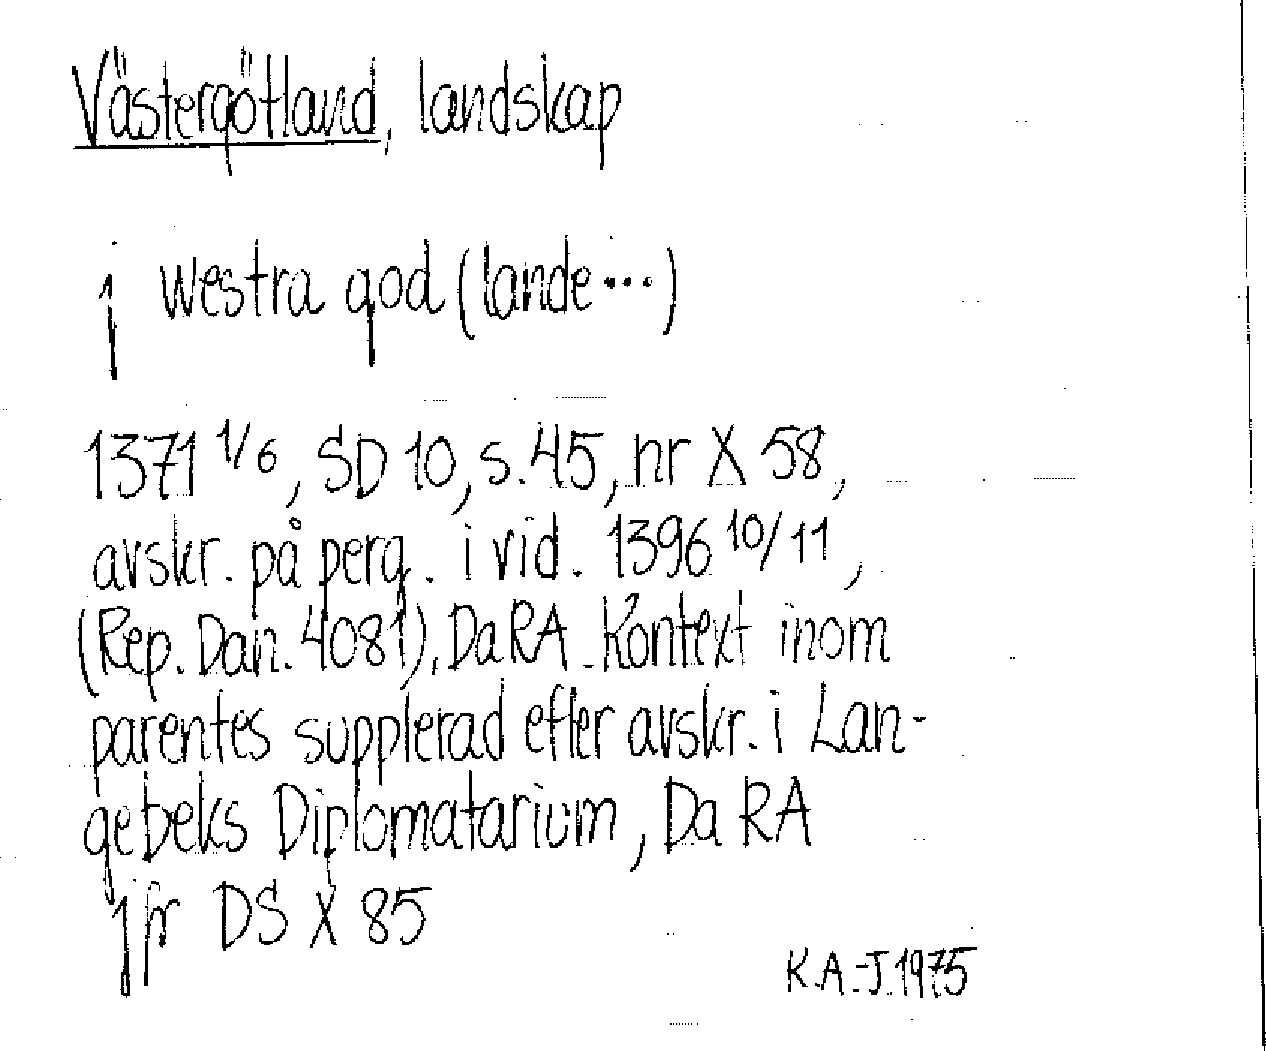 Västergötland, landskap
j westra god (lande...)
1371 1/6, SD 10, s. 45, nr X 58,
avskr. på perg. i vid. 1396 10/11,
(Rep. Dan. 4081), DaRA. Kontext inom
parentes supplerad efter avskr. i Lan-
gebeks Diplomatarium, DaRA
jfr DS X 85
K.A.-J. 1975